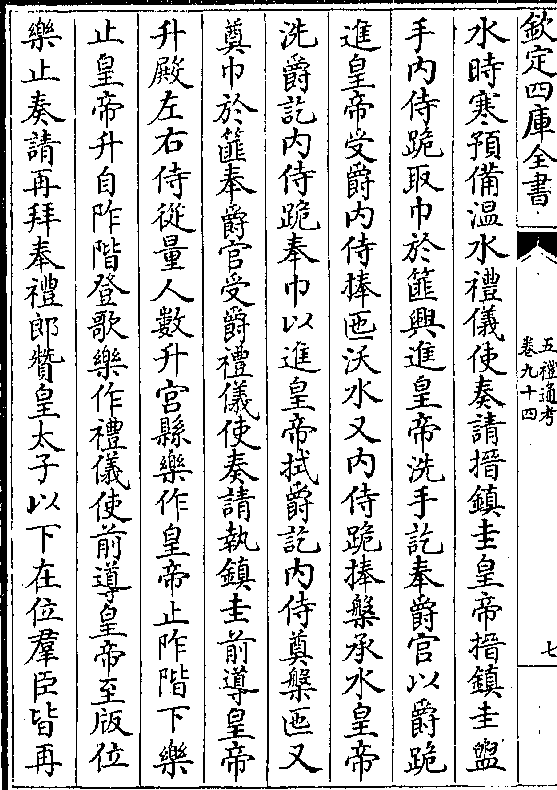 欽定四庫全書
五禮通考
卷九十四
七
水時寒預備溫水禮儀使奏請搢鎮圭皇帝搢鎮圭盥
手内侍跪取巾於篚興進皇帝洗手訖奉爵官以爵跪
進皇帝受爵内侍捧匜沃水又内侍跪捧槃承水皇帝
洗爵訖内侍跪奉巾以進皇帝拭爵訖内侍奠槃匜又
奠巾於篚奉爵官受爵禮儀使奏請執鎮圭前導皇帝
升殿左右侍從量人數升宫縣樂作皇帝止阼階下樂
止皇帝升自阼階登歌樂作禮儀使前導皇帝至版位
樂止奏請再拜奉禮郎贊皇太子以下在位羣臣皆再